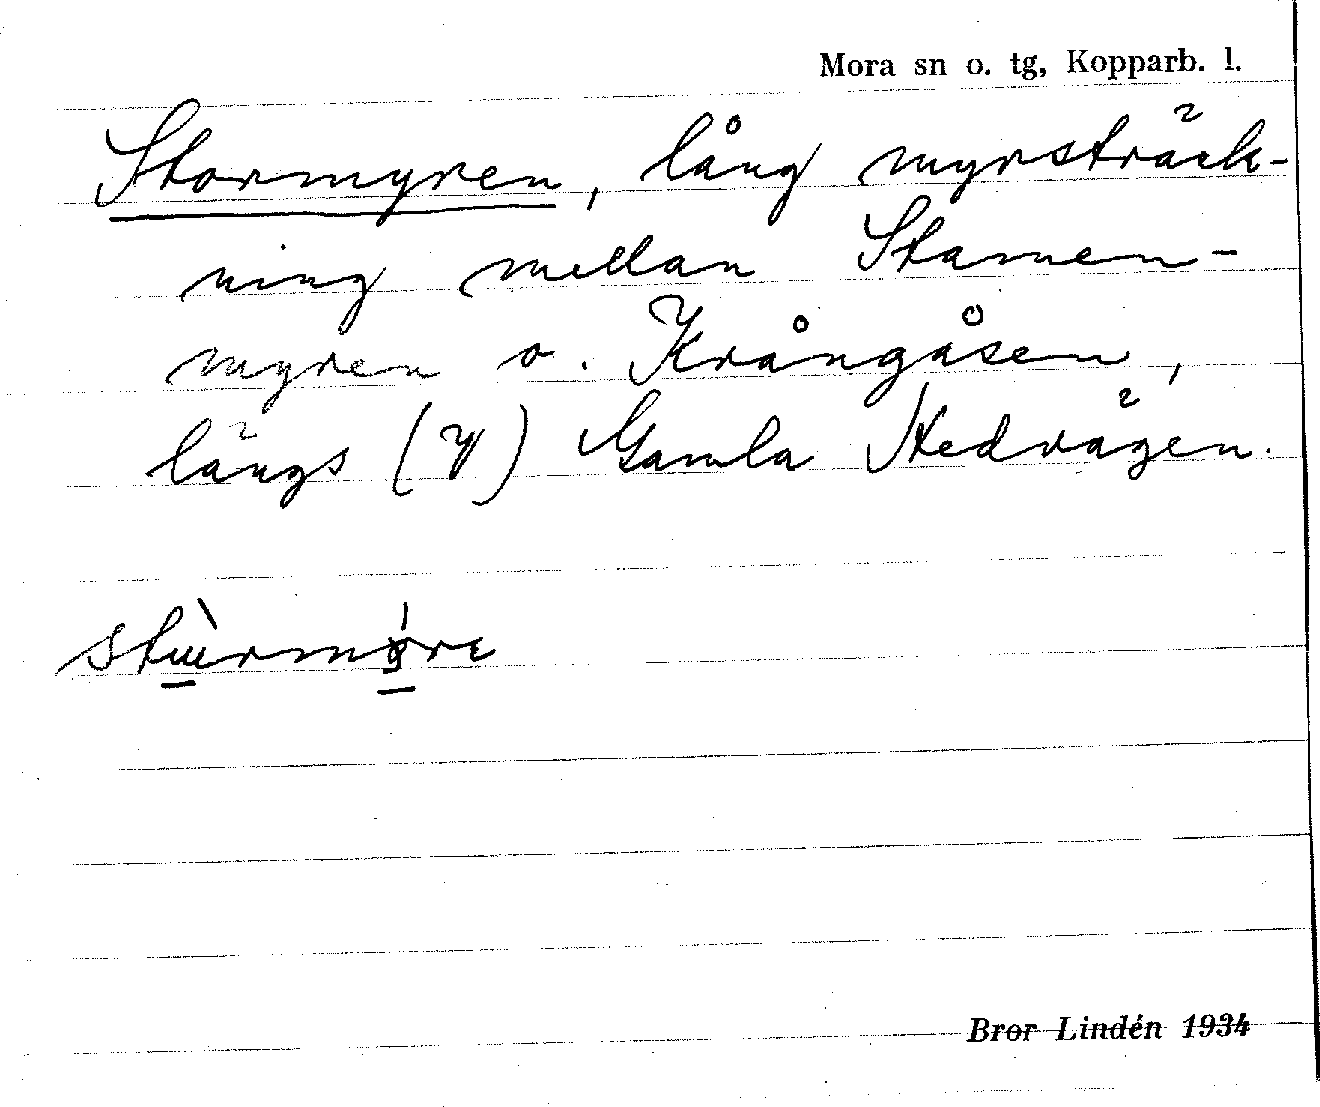 Mora sn o. tg, Kopparb. l.
Stormyren, lång myrsträck-
ning mellan Stamen-
myren o. Krångåsen,
längs (V) Gamla Hedvägen.
Bror Lindén 1934